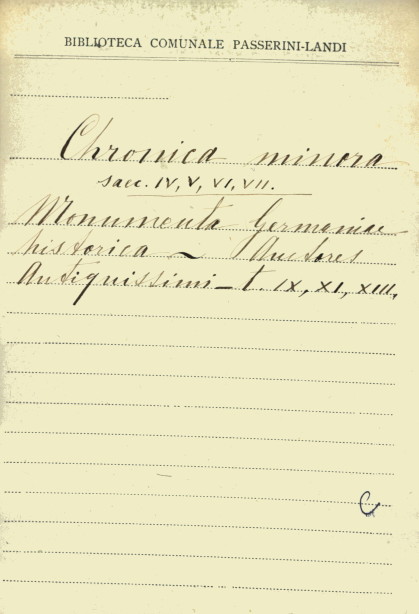 BIBLIOTECA COMUNALE PASSERINI-LANDI
Chronica minora
saec. IV, V, VI, VII.
Monumenta Germaniae
historica ~ Auctores
Antiquissimi - t. IX, XI, XIII.
C